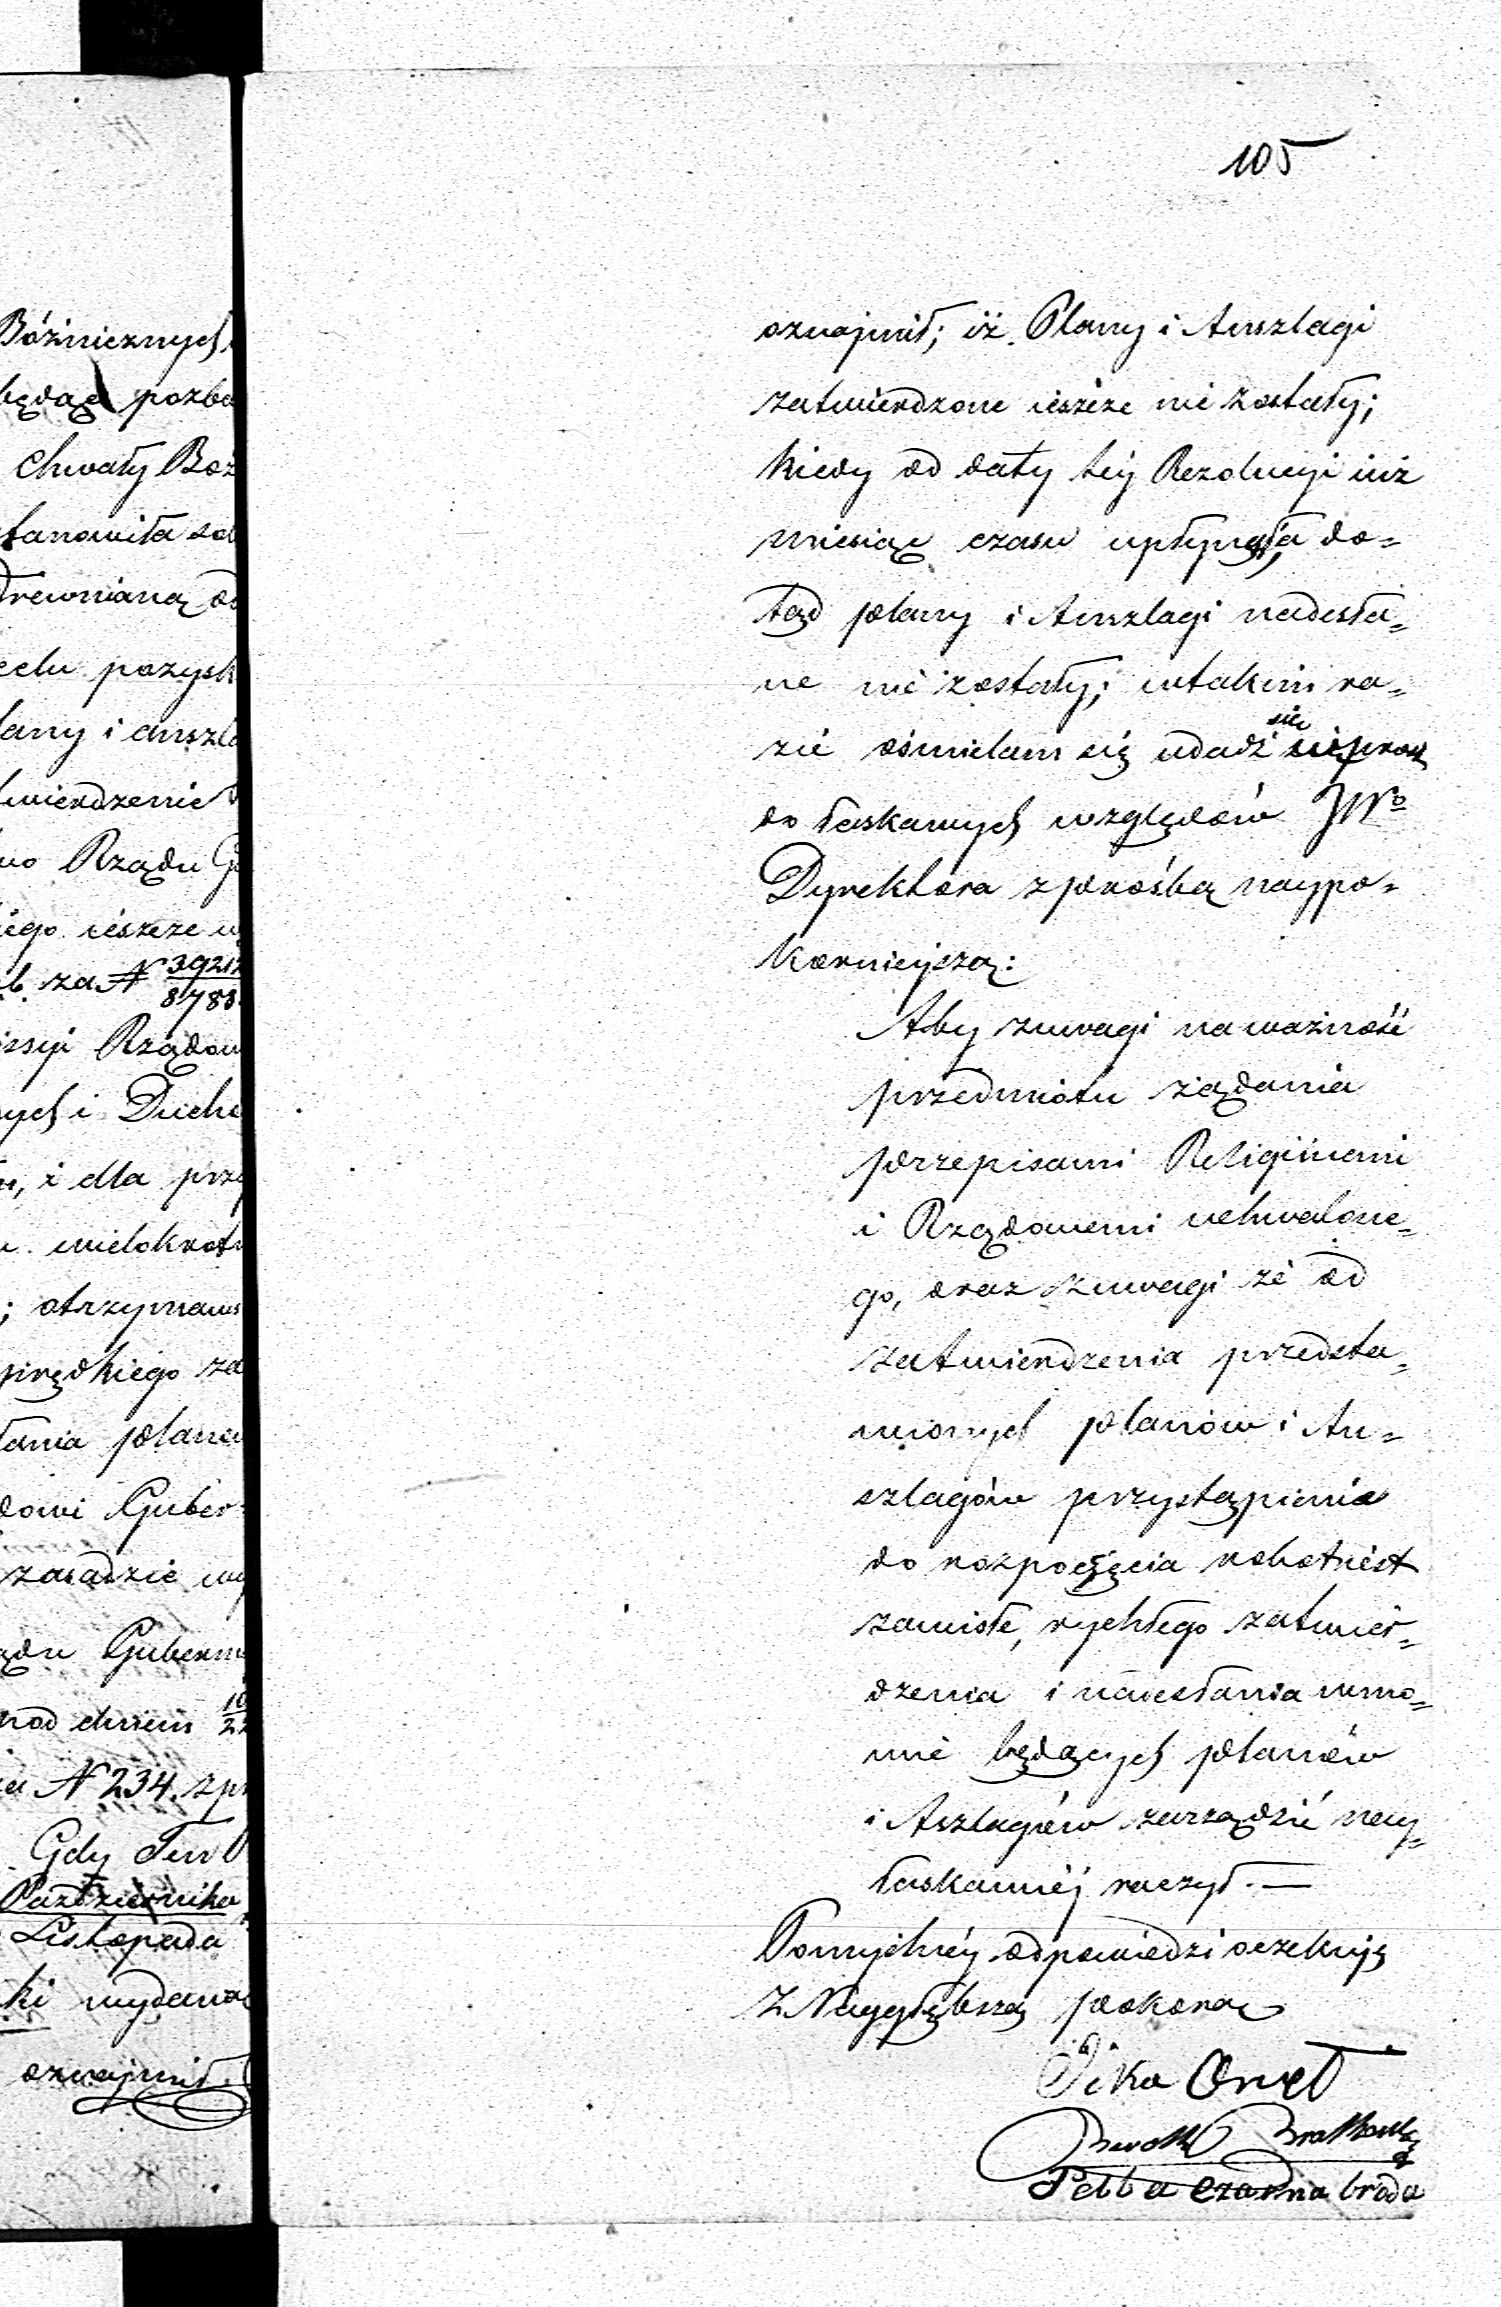 Bóżnicznych
będąc pozba
chwały Boż
stanowiła sob
drewnianą od
celu pozysk
lany i anszla
twierdzenie
wo Rządu G
iego ieszcze w
b. za N 39212/8788
issyi Rządow
nych i Duch
i dla prz
wielokrotn
; otrzymaws
prędkiego za
łania planów
dowi Guber-
zasadzie wy
ądu Guberni
pod dniem 10/22
za N 234. z pr
Gdy Tenż
Października
Listopada
ki wydano
oznajmił.
105
oznajmił; iż Plany i Anszlagi
zatwierdzone ieszcze nie zostały;
kiedy od daty téj Rezolucyi iuż
miesiąc czasu upłynęło, a do=
tąd plany i Anszlagi nadesła=
ne nie zostały; w takim ra=
zie ośmielam się udadź się
do łaskawych względów JWo
Dyrektora z prośbą naypo=
korniejszą:
Aby z uwagi na ważność
przedmiotu żądania
przepisami Religiinemi
i Rządowemi uchwalone=
go, oraz z uwagi że od
zatwierdzenia przedsta=
wionych planów i An=
szlagów przystąpienie
do rozpoczęcia robot iest
zawisłe, rychłego zatwier=
dzenia i nadesłania w mo=
wie będących planów
i Aszlagów zarządzić nay=
łaskawiéj raczył. —
Pomyślnéy odpowiedzi oczekuję
Z Naygłębszą pokorą
Icka
Czarna broda